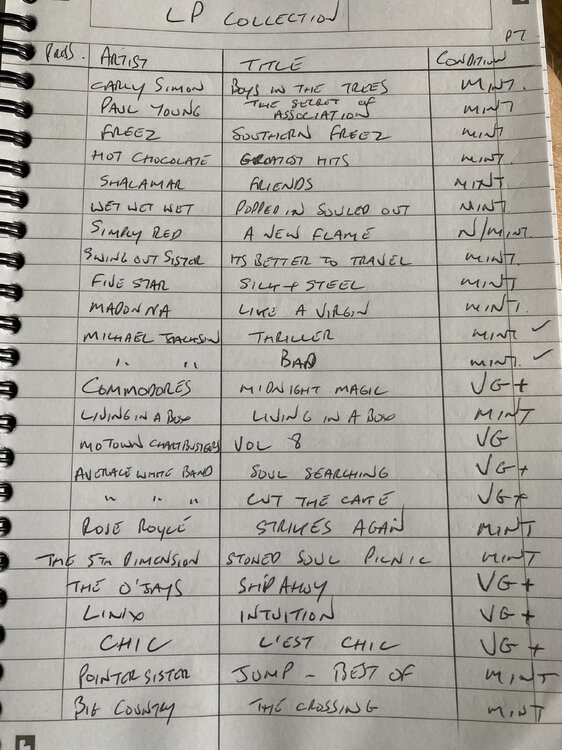 LP COLLECTION
PT
PROS. ARTIST TITLE CONDITION
CARLY SIMON BOYS IN THE TREES MINT.
PAUL YOUNG THE SECRET OF ASSOCIATION MINT
FREEZ SOUTHERN FREEZ MINT
HOT CHOCOLATE GREATEST HITS MINT.
SHALAMAR FRIENDS MINT
WET WET WET POPPED IN SOULED OUT MINT
SIMPLY RED A NEW FLAME N/MINT.
SWING OUT SISTER ITS BETTER TO TRAVEL MINT.
FIVE STAR SILK + STEEL MINT
MADONNA LIKE A VIRGIN MINT.
MICHAEL JACKSON THRILLER MINT ✓
" " BAD MINT. ✓
COMMODORES MIDNIGHT MAGIC VG+
LIVING IN A BOX LIVING IN A BOX MINT
MOTOWN CHARTBUSTERS VOL 8 VG
AVERAGE WHITE BAND SOUL SEARCHING VG+
" " " CUT THE CAKE VG+
ROSE ROYCE STRIKES AGAIN MINT
THE 5TH DIMENSION STONED SOUL PICNIC MINT
THE O'JAYS SHIP AHOY VG+
LINX INTUITION VG+
CHIC C'EST CHIC VG+
POINTER SISTER JUMP - BEST OF MINT
BIG COUNTRY THE CROSSING MINT